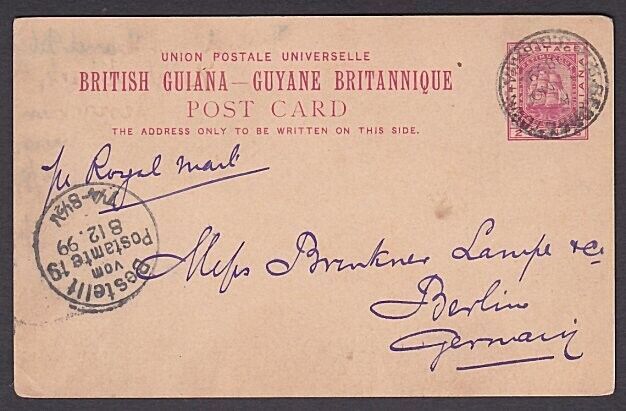 UNION POSTALE UNIVERSELLE
BRITISH GUIANA—GUYANE BRITANNIQUE
POST CARD
THE ADDRESS ONLY TO BE WRITTEN ON THIS SIDE.
POSTAGE
GUIANA
pr Royal Mail
Bestellt
vom
Postamte 19
8 12. 99
7¼-8½N
Messs Brenkner Lampe & Co
Berlin
Germany